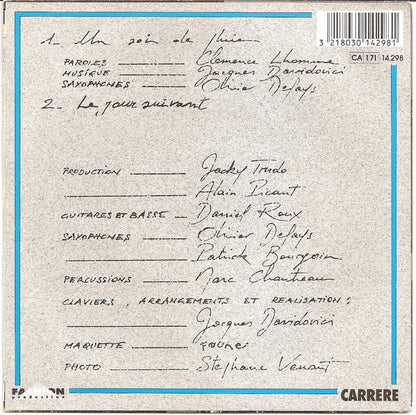 1. Un soir de pluie
3 218030 142981
PAROLES Clemence Lhomme
CA 171 14.298
MUSIQUE Jacques Davidovici
SAXOPHONES Olivier Defays
2. Le jour suivant
PRODUCTION Jacky Trudo
Alain Picant
GUITARES ET BASSE Daniel Roux
SAXOPHONES Olivier Defays
Patrick Bourgoin
PERCUSSIONS Marc Chanteau
CLAVIERS, ARRANGEMENTS ET REALISATION:
Jacques Davidovici
MAQUETTE
PHOTO Stephane Venant
production
CARRERE